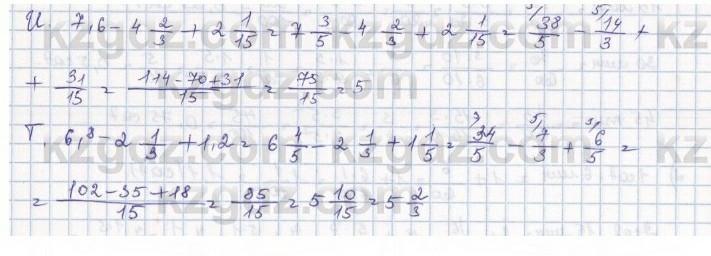 И. 7,6 - 4 2/3 + 2 1/15 = 7 3/5 - 4 2/3 + 2 1/15 = ³⁾38/5 - ⁵⁾14/3 +
+ 31/15 = (114-70+31)/15 = 75/15 = 5
Т. 6,8 - 2 1/3 + 1,2 = 6 4/5 - 2 1/3 + 1 1/5 = ³⁾34/5 - ⁵⁾7/3 + ³⁾6/5 =
= (102-35+18)/15 = 85/15 = 5 10/15 = 5 2/3